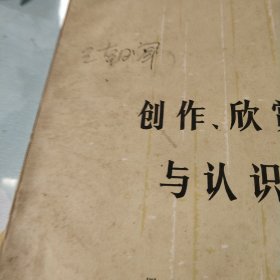 王朝闻
创作、欣赏
与认识